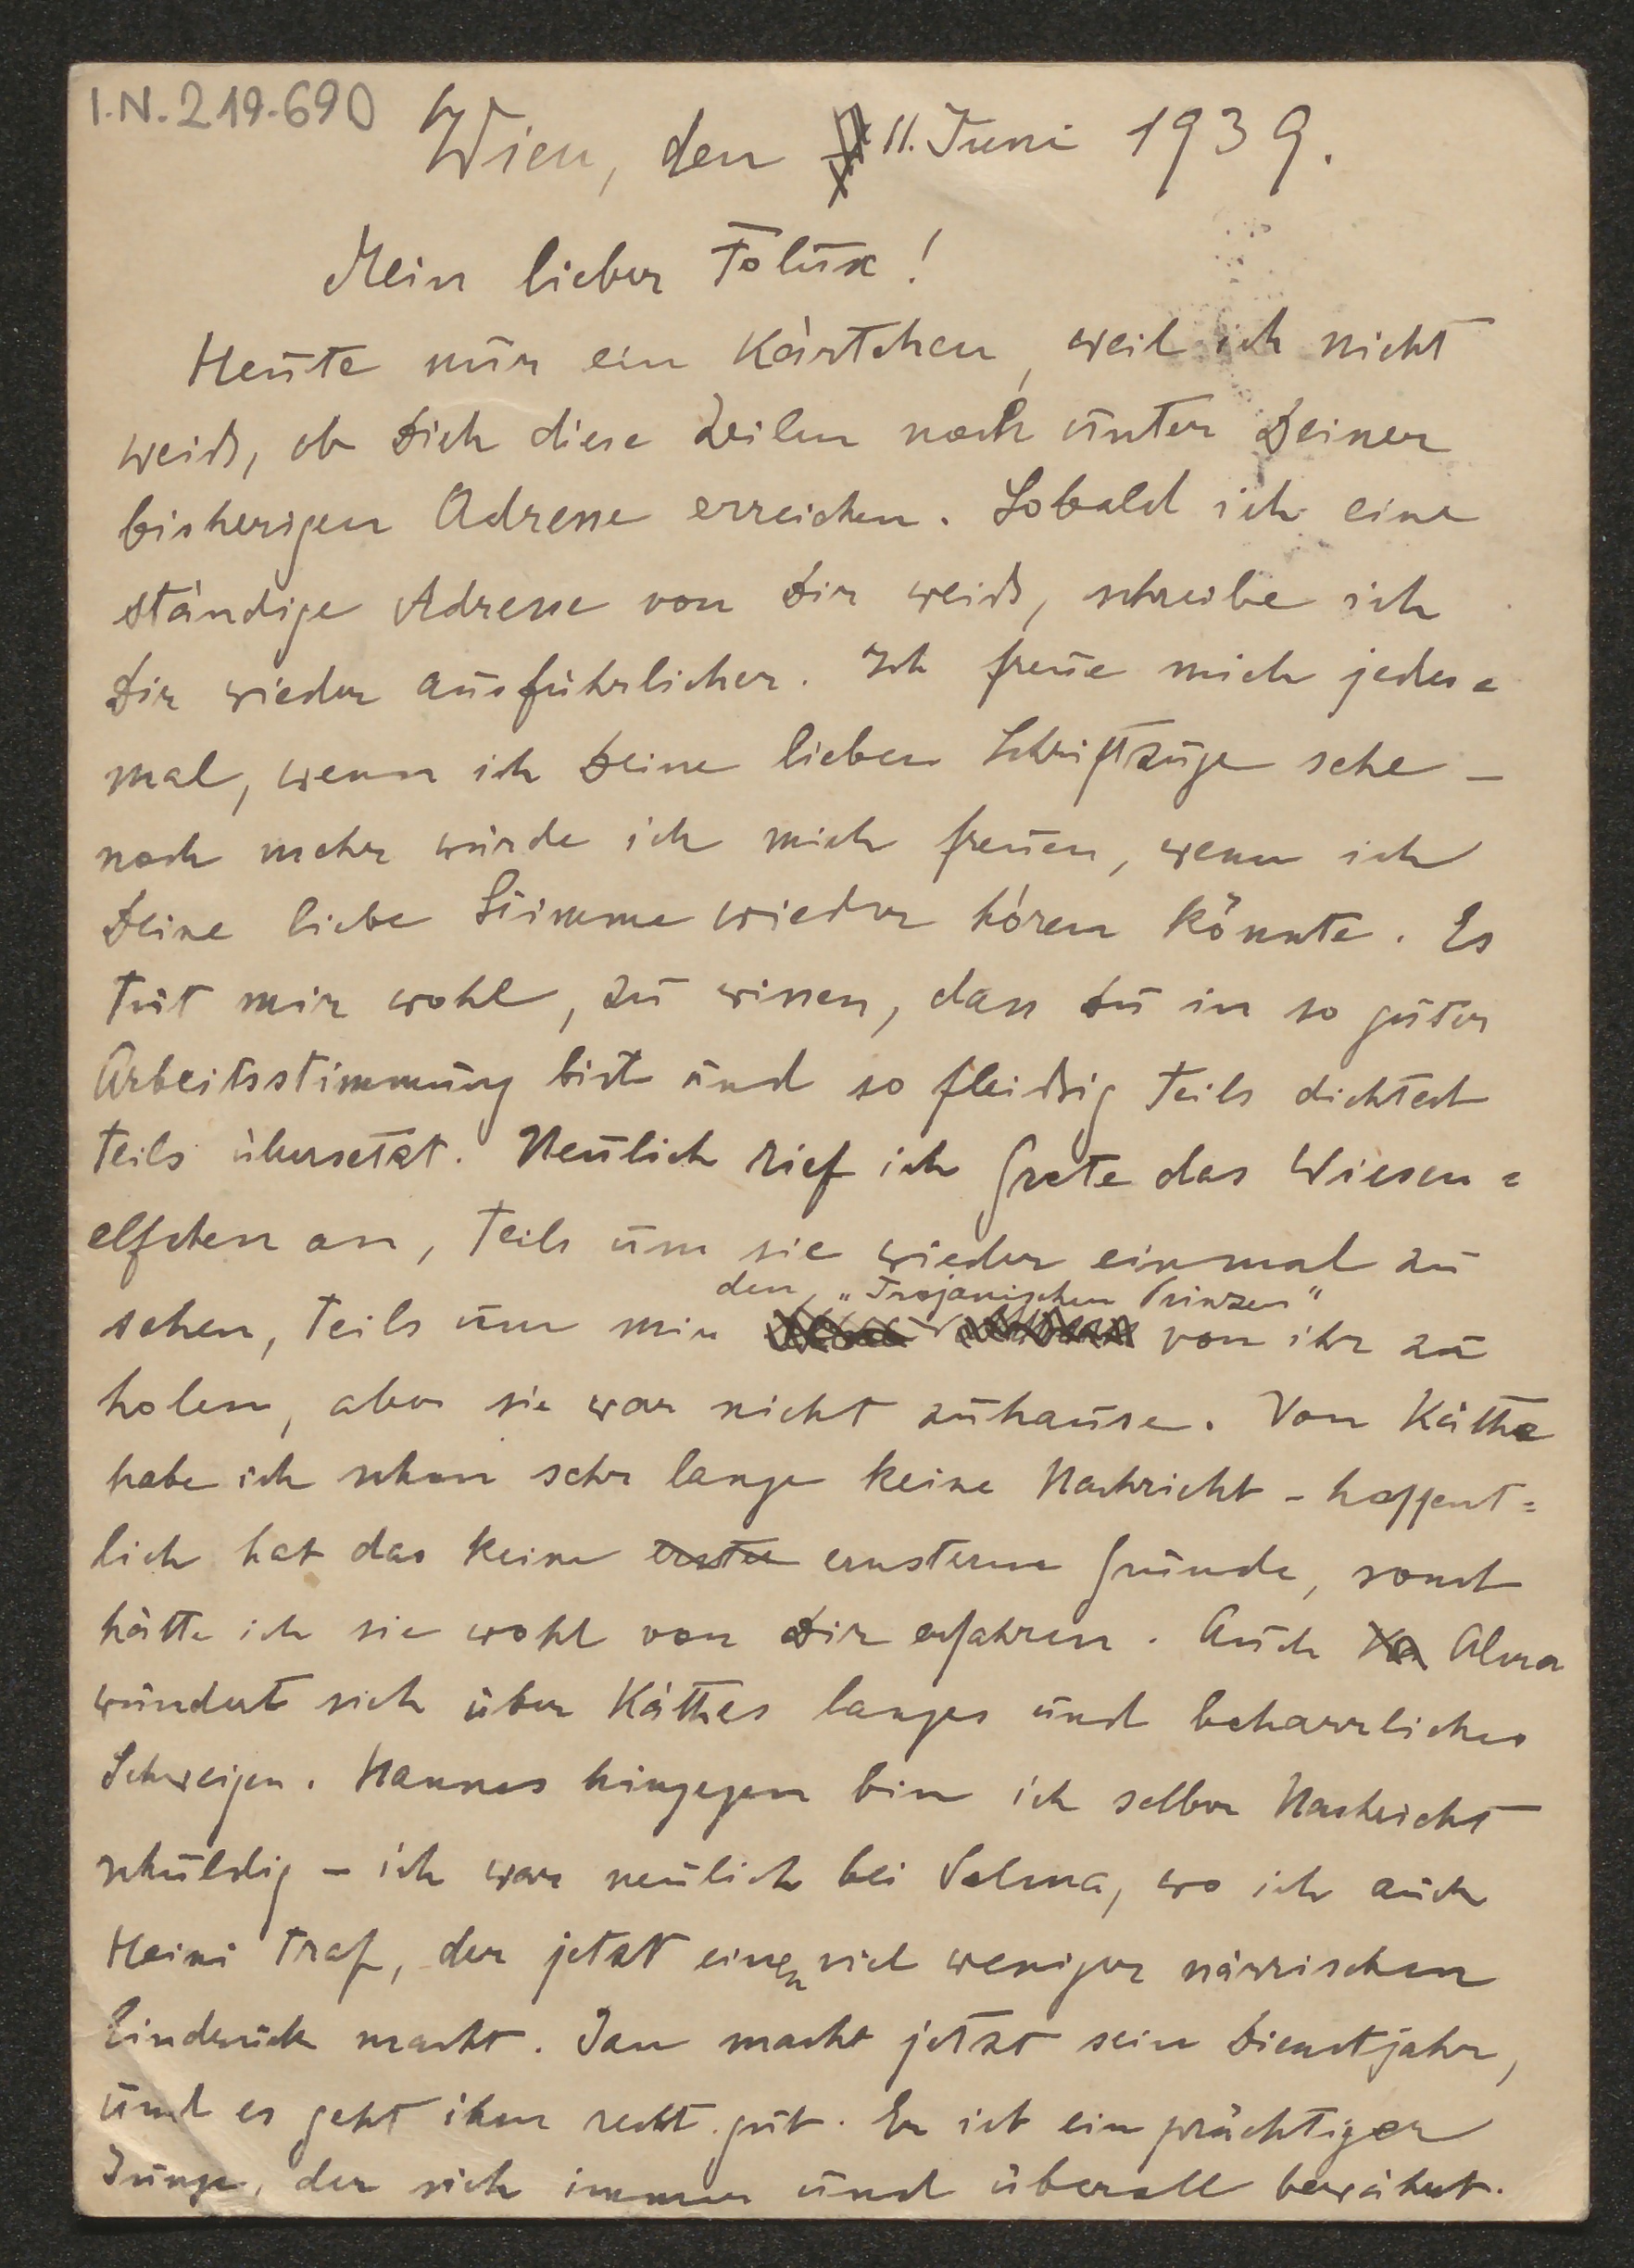 I.N. 219.690
Wien, den 11. Juni 1939.
Mein lieber Foluk!
Heute nur ein Kärtchen, weil ich nicht
weiß, ob Dich diese Zeilen noch unter Deiner
bisherigen Adresse erreichen. Sobald ich eine
ständige Adresse von Dir weiß, schreibe ich
Dir wieder ausführlicher. Ich freue mich jedes=
mal, wenn ich Deine lieben Schriftzüge sehe –
noch mehr würde ich mich freuen, wenn ich
Deine liebe Stimme wieder hören könnte. Es
tut mir wohl, zu wissen, dass Du in so guter
Arbeitsstimmung bist und so fleißig teils dichtest
teils übersetzt. Neulich rief ich Grete das Wiesen=
elfchen an, teils um sie wieder einmal zu
den „Trojanischen Prinzen“
sehen, teils um mir von ihr zu
holen, aber sie war nicht zuhause. Von Käthe
habe ich schon sehr lange keine Nachricht – hoffent=
lich hat das keine ernste ernsteren Gründe, sonst
hätte ich sie wohl von Dir erfahren. Auch Alma
wundert sich über Käthes langes und beharrliches
Schweigen. Hannes hingegen bin ich selber Nachricht
schuldig – ich war neulich bei Selma, wo ich auch
Heini traf, der jetzt einen viel weniger närrischen
Eindruck macht. Jan macht jetzt sein Dienstjahr,
und es geht ihm recht gut. Er ist ein prächtiger
Junge, der sich immer und überall bewährt.